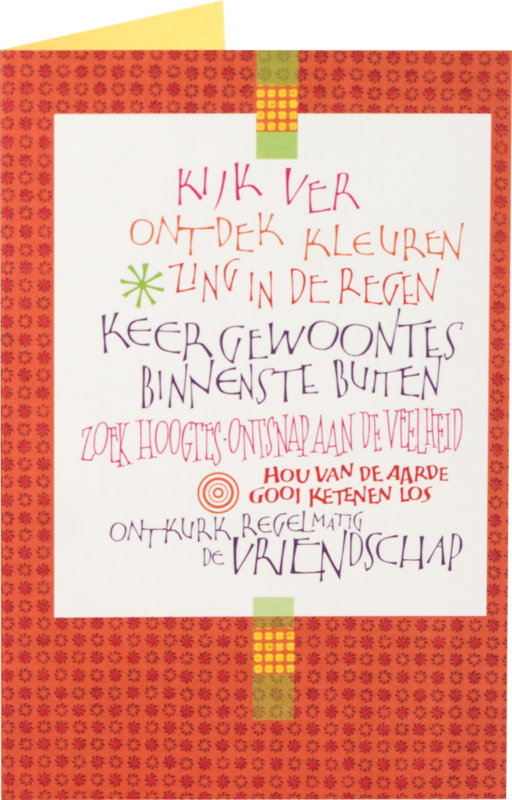 KIJK VER
ONTDEK KLEUREN
ZING IN DE REGEN
KEER GEWOONTES
BINNENSTE BUITEN
ZOEK HOOGTES · ONTSNAP AAN DE VEELHEID
HOU VAN DE AARDE
GOOI KETENEN LOS
ONTKURK REGELMATIG
DE VRIENDSCHAP